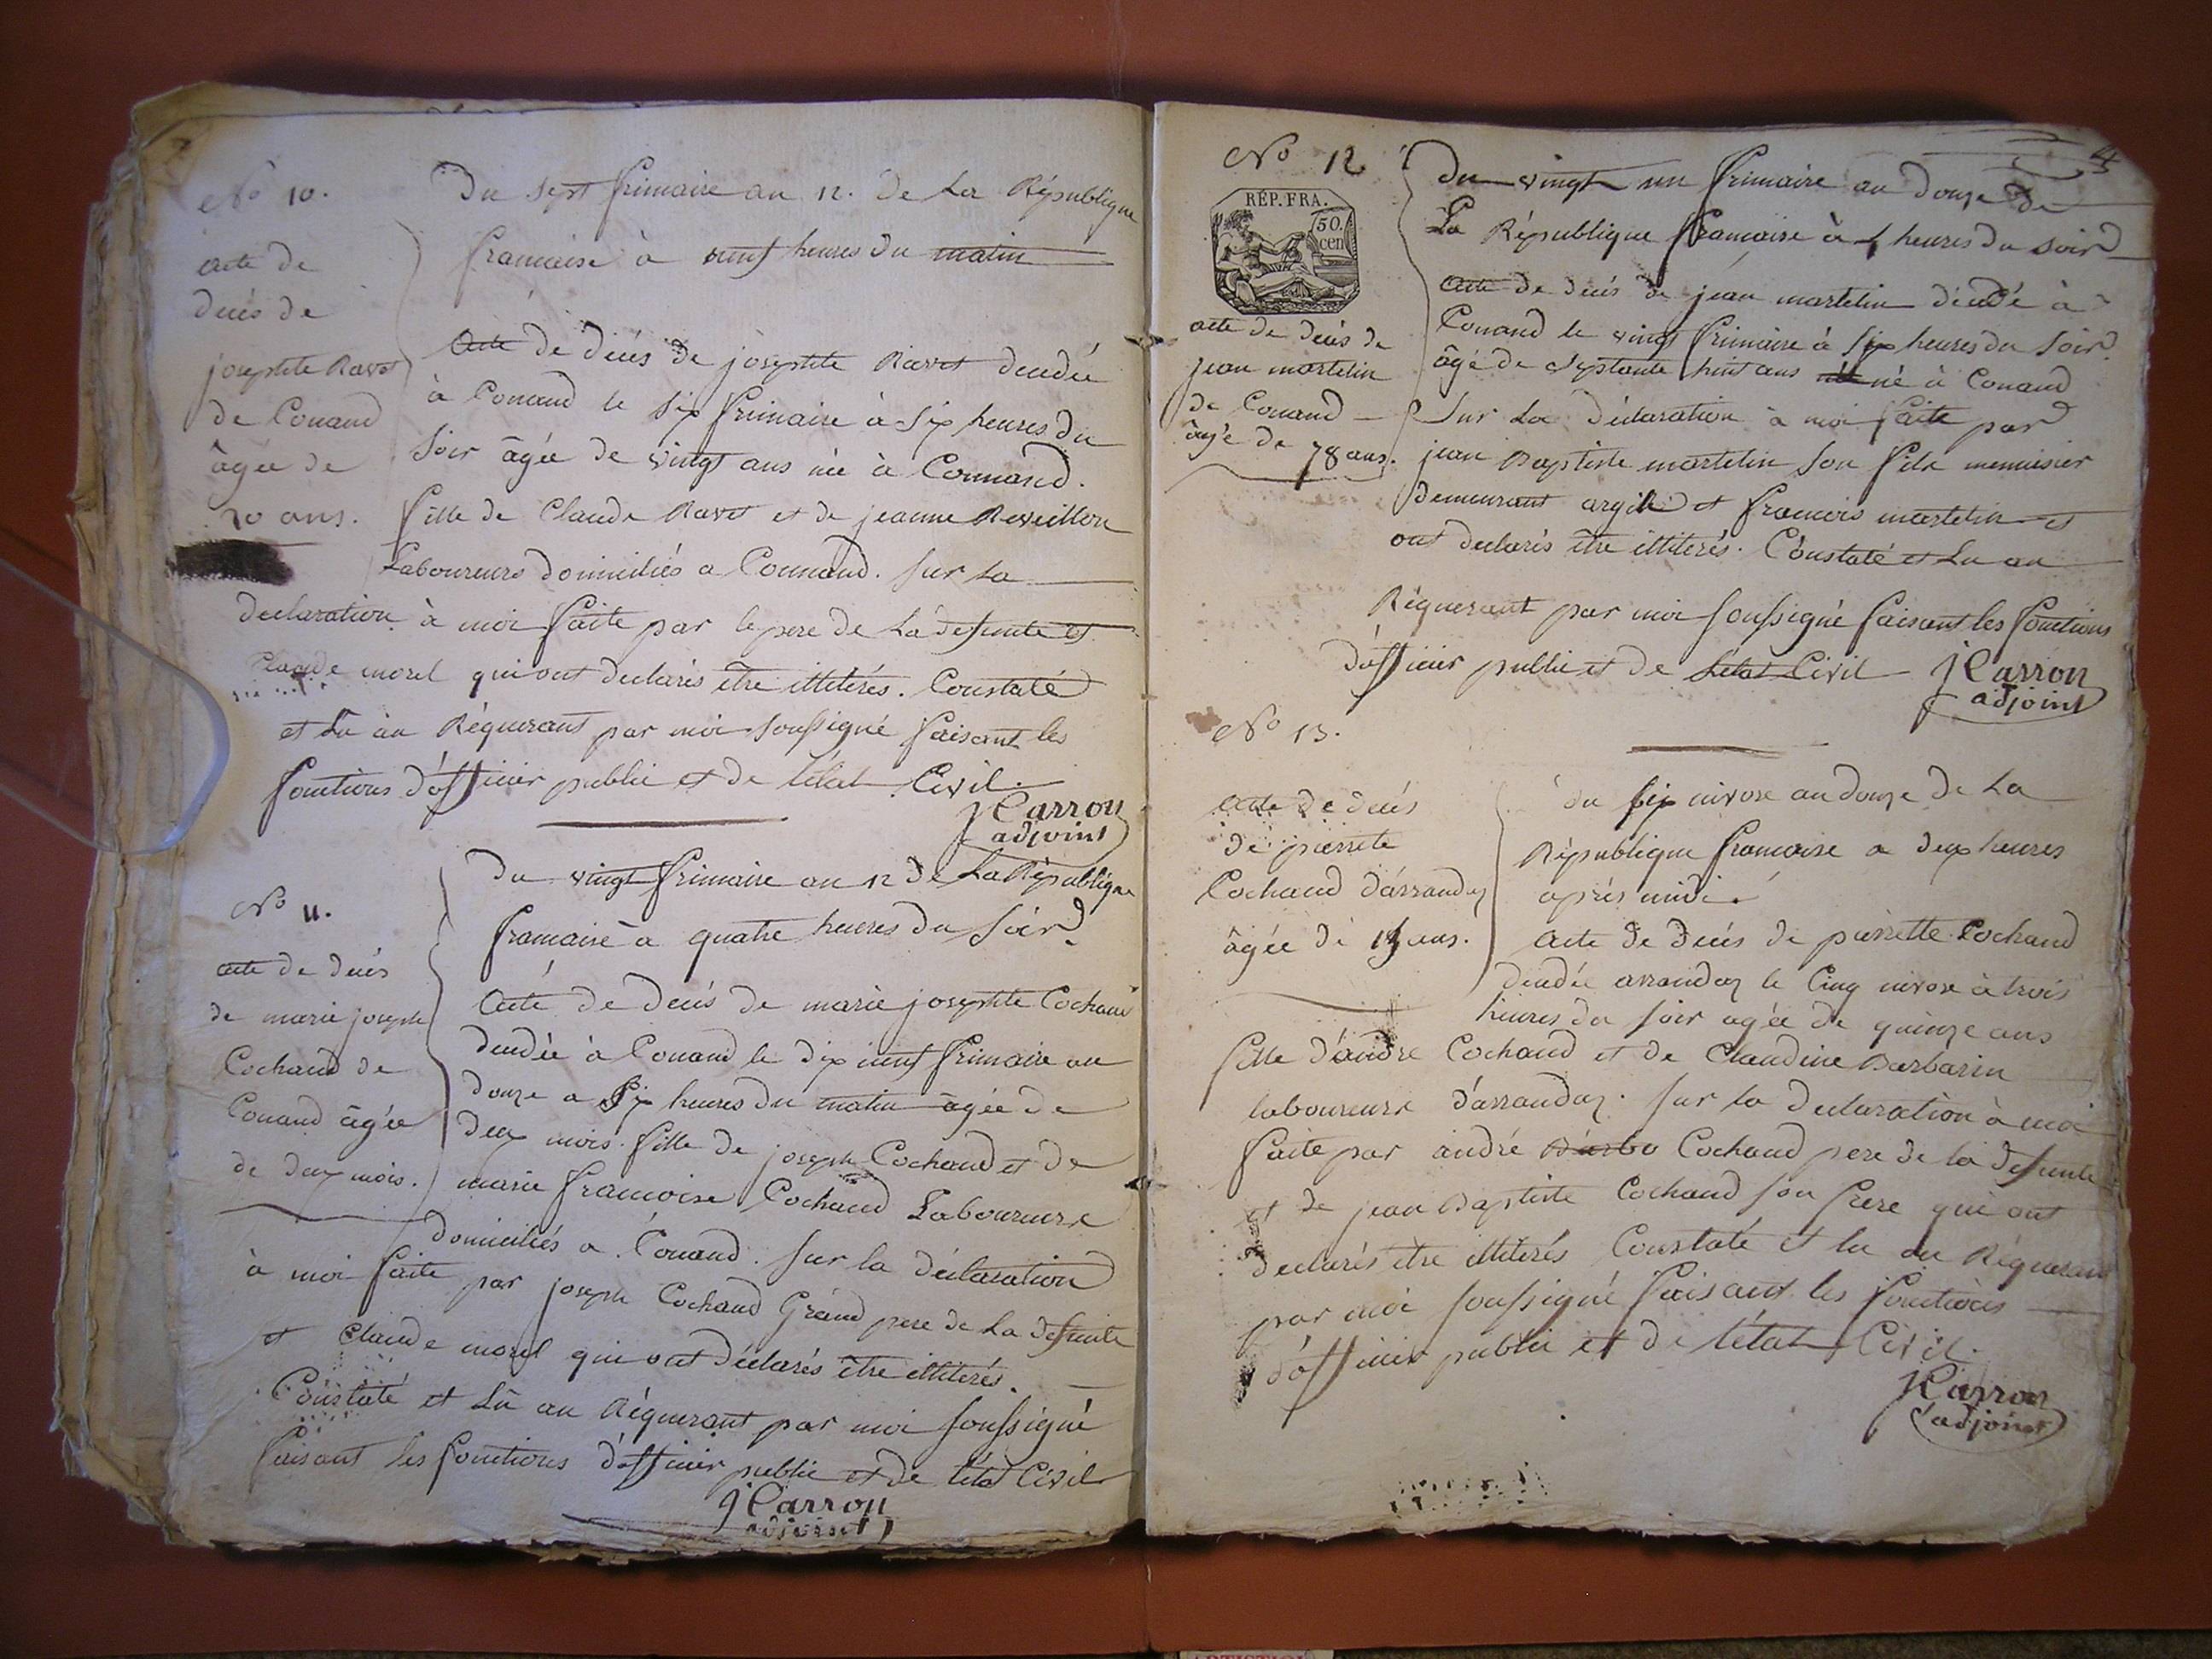 No 10.
acte de
decés de
josephte Ravet
de Conand
âgée de
20 ans.
Du sept frimaire an 12. de La République
francaise à neuf heures du matin
Acte de decés de josephte Ravet decedée
à Conand le six frimaire à six heures du
soir âgée de vingt ans née à Connand.
fille de Claude Ravet et de jeanne Reveillon
Laboureurs domiciliés a Connand. sur La
declaration à moi faite par le pere de La defunte et
Claude morel qui ont declarés être illiterés. Constaté
et Lu au Réquerant par moi soussigné faisant les
fonctions d'officier public et de l'état Civil.
JCarron
adjoint
No 11.
acte de decés
de marie joseph
Cochand de
Conand âgée
de deux mois.
Du vingt frimaire an 12 de La République
francaise à quatre heures du soir
Acte de decés de marie josephte Cochand
decedée à Conand le dix neuf frimaire an
douze a six heures du matin âgée de
deux mois. fille de joseph Cochand et de
marie francoise Cochand Laboureurs
domiciliés a Conand. sur la déclaration
à moi faite par joseph Cochand Grand pere de La defunte
et Claude morel qui ont déclarés être illiterés.
Constaté et Lu au Réquerant par moi soussigné
faisant les fonctions d'officier public et de l'état Civil
JCarron
adjoint
4
No 12
RÉP. FRA.
50.
cen
acte de decés de
jean martelin
de Conand
âgé de 78 ans.
Du vingt un frimaire an douze de
La République francaise à 4 heures du soir
Acte de decés de jean martelin décedé à
Conand le vingt frimaire à six heures du soir.
âgé de septante huit ans né à Conand
sur La déclaration à moi faite par
jean Baptiste martelin son fils menuisier
demeurant argis et francois martelin et
ont declarés être illiterés. Constaté et Lu au
Réquerant par moi soussigné faisant les fonctions
d'officier public et de L'état Civil
JCarron
adjoint
No 13.
Acte de decés
de pierrette
Cochand d'arrandaz
âgée de 15 ans.
du six nivose an douze de La
République francaise a deux heures
après midi.
Acte de decés de pierrette Cochand
decedée arrandaz le Cinq nivose à trois
heures du soir agée de quinze ans
fille d'andre Cochand et de Claudine Barbarin
laboureurs d'arrandaz. sur la declaration à moi
faite par andré Barba Cochand pere de la defunte
et de jean Baptiste Cochand son frere qui ont
declarés être illiterés Constaté et lu au Réquerant
par moi soussigné faisant les fonctions
d'officier public et de l'état Civil.
JCarron
adjoint